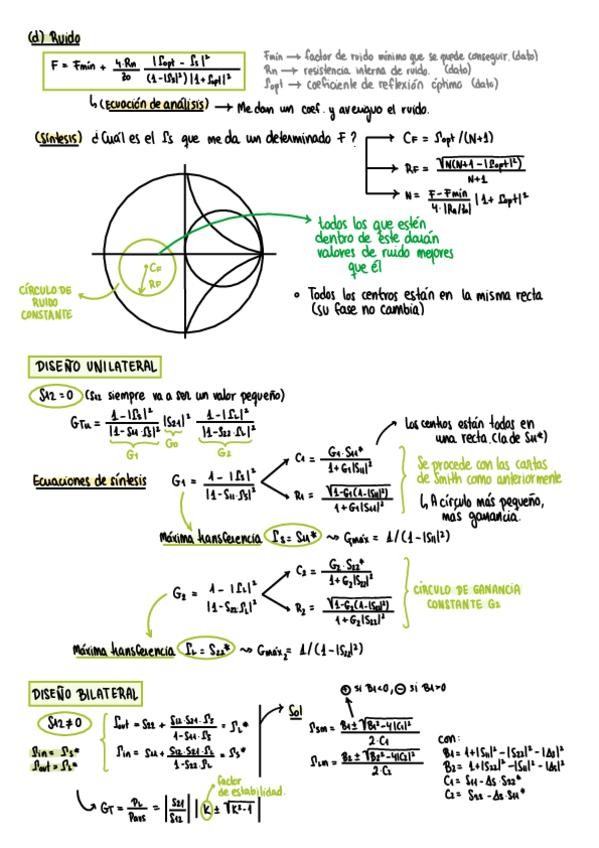 (d) Ruido
F = Fmín + 4·Rn/Z0 · |Γopt - Γs|² / (1-|Γs|²)|1+Γopt|²
Fmin → factor de ruido mínimo que se puede conseguir. (dato)
Rn → resistencia interna de ruido. (dato)
Γopt → coeficiente de reflexión óptimo (dato)
↳ (Ecuación de análisis) → Me dan un coef. y averiguo el ruido.
(Síntesis) ¿Cuál es el Γs que me da un determinado F?
CF = Γopt/(N+1)
RF = √N(N+1-|Γopt|²) / N+1
N = F-Fmin / 4·|Rn/Z0| |1+Γopt|²
todos los que estén
dentro de este darán
valores de ruido mejores
que él
CF
RF
CÍRCULO DE
RUIDO
CONSTANTE
• Todos los centros están en la misma recta
(su fase no cambia)
DISEÑO UNILATERAL
S12 = 0 (S12 siempre va a ser un valor pequeño)
GTu = 1-|Γs|² / |1-S11·Γs|² |S21|² 1-|ΓL|² / |1-S22·ΓL|²
G1 G0 G2
Los centros están todos en
una recta. (la de S11*)
Ecuaciones de síntesis
G1 = 1-|Γs|² / |1-S11·Γs|²
C1 = G1·S11* / 1+G1|S11|²
R1 = √1-G1(1-|S11|²) / 1+G1|S11|²
Se procede con las cartas
de Smith como anteriormente
↳ A círculo más pequeño,
más ganancia.
Máxima transferencia Γs = S11* ⇝ Gmáx = 1/(1-|S11|²)
G2 = 1-|ΓL|² / |1-S22·ΓL|²
C2 = G2·S22* / 1+G2|S22|²
R2 = √1-G2(1-|S22|²) / 1+G2|S22|²
CÍRCULO DE GANANCIA
CONSTANTE G2
Máxima transferencia ΓL = S22* ⇝ Gmáx2 = 1/(1-|S22|²)
DISEÑO BILATERAL
S12 ≠ 0
Γin = Γs*
Γout = ΓL*
Γout = S22 + S12·S21·Γs / 1-S11·Γs = ΓL*
Γin = S11 + S12·S21·ΓL / 1-S22·ΓL = Γs*
Sol
⊕ si B1<0, ⊖ si B1>0
Γsm = B1 ± √B1²-4|C1|² / 2·C1
ΓLm = B2 ± √B2²-4|C2|² / 2·C2
con:
B1 = 1+|S11|²-|S22|²-|Δs|²
B2 = 1+|S22|²-|S11|²-|Δs|²
C1 = S11-Δs·S22*
C2 = S22-Δs·S11*
factor
de estabilidad.
↳ GT = PL/Pavs = |S21/S12| |K ± √K²-1|